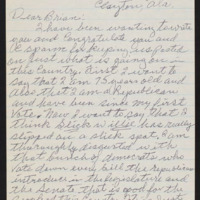 Clayton, Ala.
Dear Brian:
I have been wanting to write
you and congratulate you and
on just what is going on
this Country. First I want to
say that I am 75 years old and
also that I am a Republican
and have been since my first
vote. Now I want to say that I
think Slick Willie has really
slipped on a slick spot. I am
thoroughly disgusted with
that bunch of democrats who
vote down every bill the Republicans
introduce in the legislature and
the Senate that is good for the